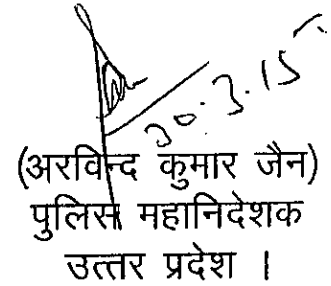 30.3.15
(अरविन्द कुमार जैन)
पुलिस महानिदेशक
उत्तर प्रदेश ।